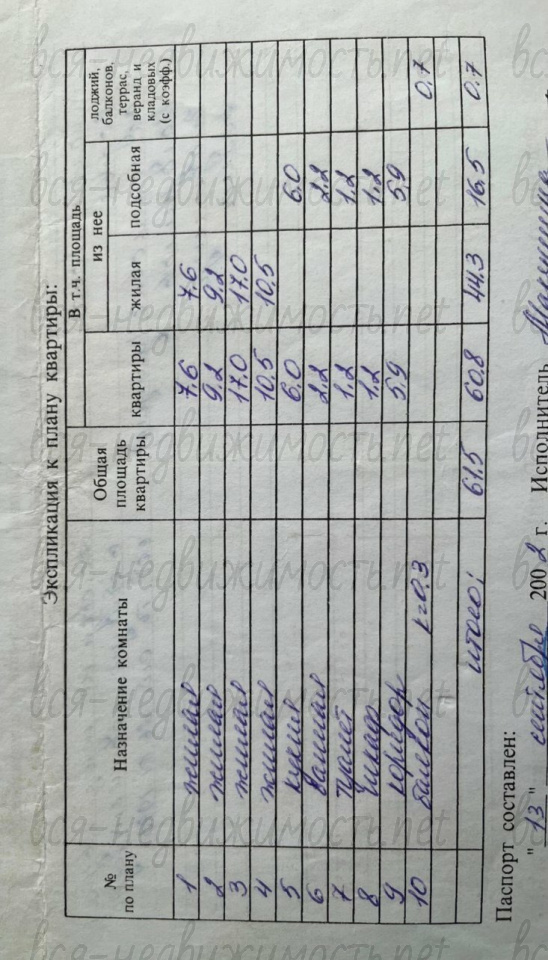 Экспликация к плану квартиры:
№ по плану | Назначение комнаты | Общая площадь квартиры | В т.ч. площадь
квартиры | из нее | лоджий, балконов, террас, веранд и кладовых (с коэфф.)
жилая | подсобная
1 жилая 7,6 7,6
2 жилая 9,2 9,2
3 жилая 17.0 17.0
4 жилая 10,5 10,5
5 кухня 6.0 6.0
6 ванная 2,2 2,2
7 туалет 1,2 1,2
8 шкаф 1,2 1,2
9 коридор 5,9 5,9
10 балкон к=0,3 0.7
итого: 61.5 60.8 44.3 16.5 0.7
Паспорт составлен:
"13" сентября 2002 г. Исполнитель
вся-недвижимость.net